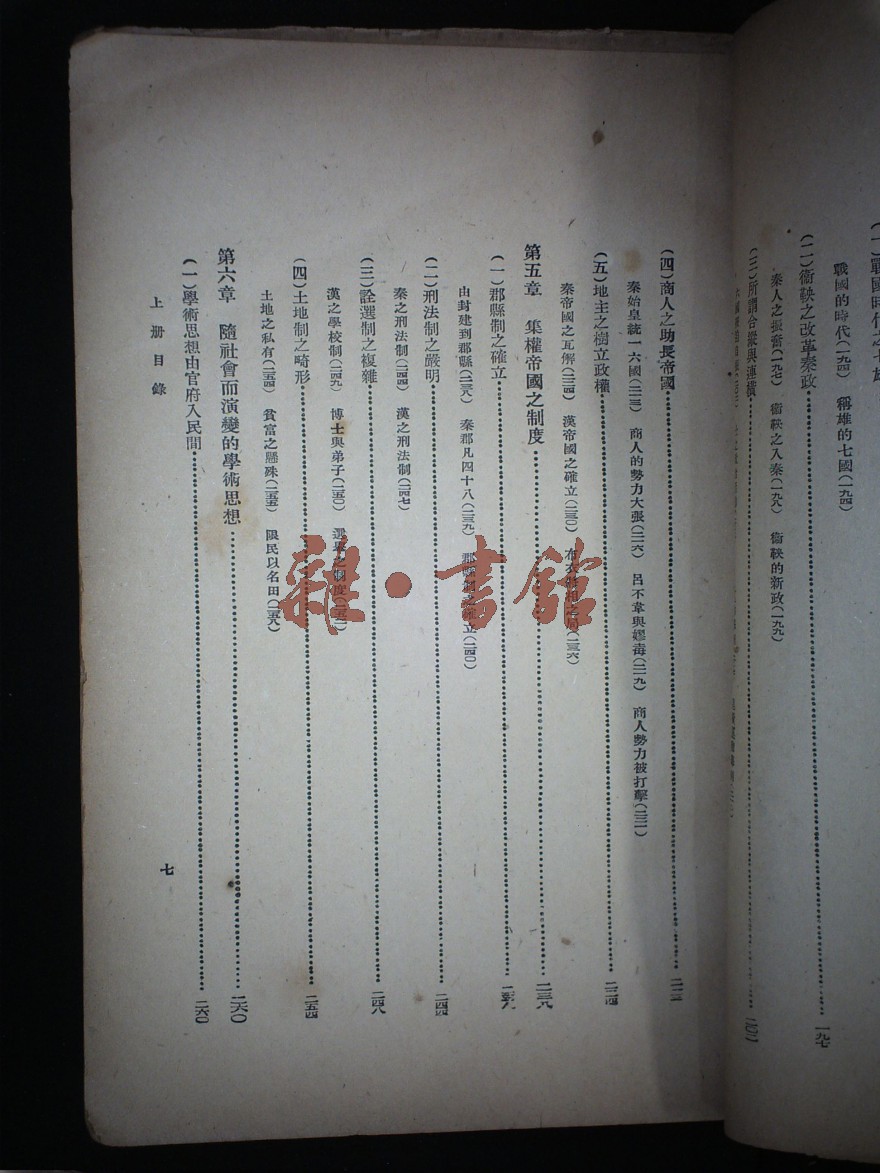 (一)戰國時代之七雄
戰國的時代(一九四) 稱雄的七國(一九四)
(二)衞鞅之改革秦政……一九七
秦人之振奮(一九七) 衞鞅之入秦(一九八) 衞鞅的新政(一九九)
(三)所謂合縱與連橫
(四)商人之助長帝國
秦始皇統一六國 商人的勢力大張(二一六) 呂不韋與嫪毐(二一九) 商人勢力被打擊(二二一)
(五)地主之樹立政權……二二四
秦帝國之瓦解(二二四) 漢帝國之確立(二三〇) 布衣將相之局(二三六)
第五章 集權帝國之制度……二三八
(一)郡縣制之確立
由封建到郡縣(二三八) 秦郡凡四十八(二三九) 郡縣制之確立(二四〇)
(二)刑法制之嚴明……二四四
秦之刑法制(二四四) 漢之刑法制(二四七)
(三)詮選制之複雜……二四八
漢之學校制(二四九) 博士與弟子(二五〇) 選舉之制度(二五二)
(四)土地制之畸形……二五四
土地之私有(二五四) 貧富之懸殊(二五五) 限民以名田(二五八)
第六章 隨社會而演變的學術思想……二六〇
(一)學術思想由官府入民間……二六〇
上册目錄
七
雜·書館